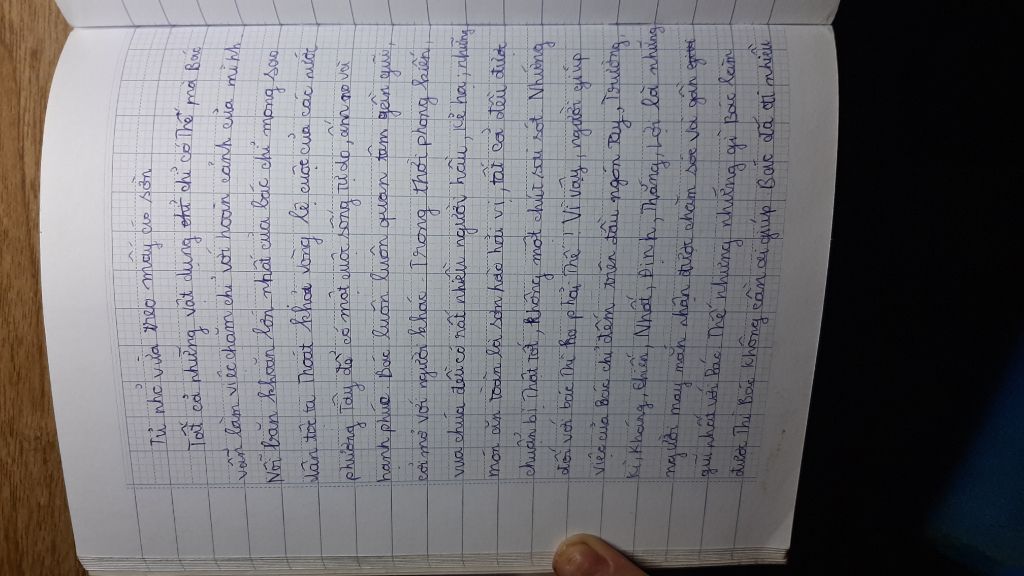 Tủ nhỏ vừa treo mấy áo sờn
Tất cả những vật dụng chỉ có Thế mà Bác
vẫn làm việc chăm chỉ với hoàn cảnh của mình
Nỗi băn khoăn lớn nhất của bác chỉ mong sao
dân tộc ta Thoát khỏi vòng lệ cuộc của các nước
phương Tây để có một cuộc sống tự do, ấm no và
hạnh phúc Bác luôn luôn quan tâm gần gũi,
cởi mở với người khác Trong thời phong kiến,
vua chúa đều có rất nhiều người hầu, kẻ hạ; những
món ăn toàn là sơn hào hải vị, tất cả đều được
chuẩn bị Thật tốt, không một chút sai sót Nhưng
đối với bác Thì Ko phải Thế! Vì vậy, người giúp
việc của Bác chỉ đếm trên đầu ngón tay, Trường,
Kì, Kháng, Chiến, Nhất, Định, Thắng, Lợi là những
người may mắn nhận được chăm sóc và gần
gũi nhất với Bác Thế nhưng những gì Bác làm
được Thì Bác không cần ai giúp Bác đã đi nhiều